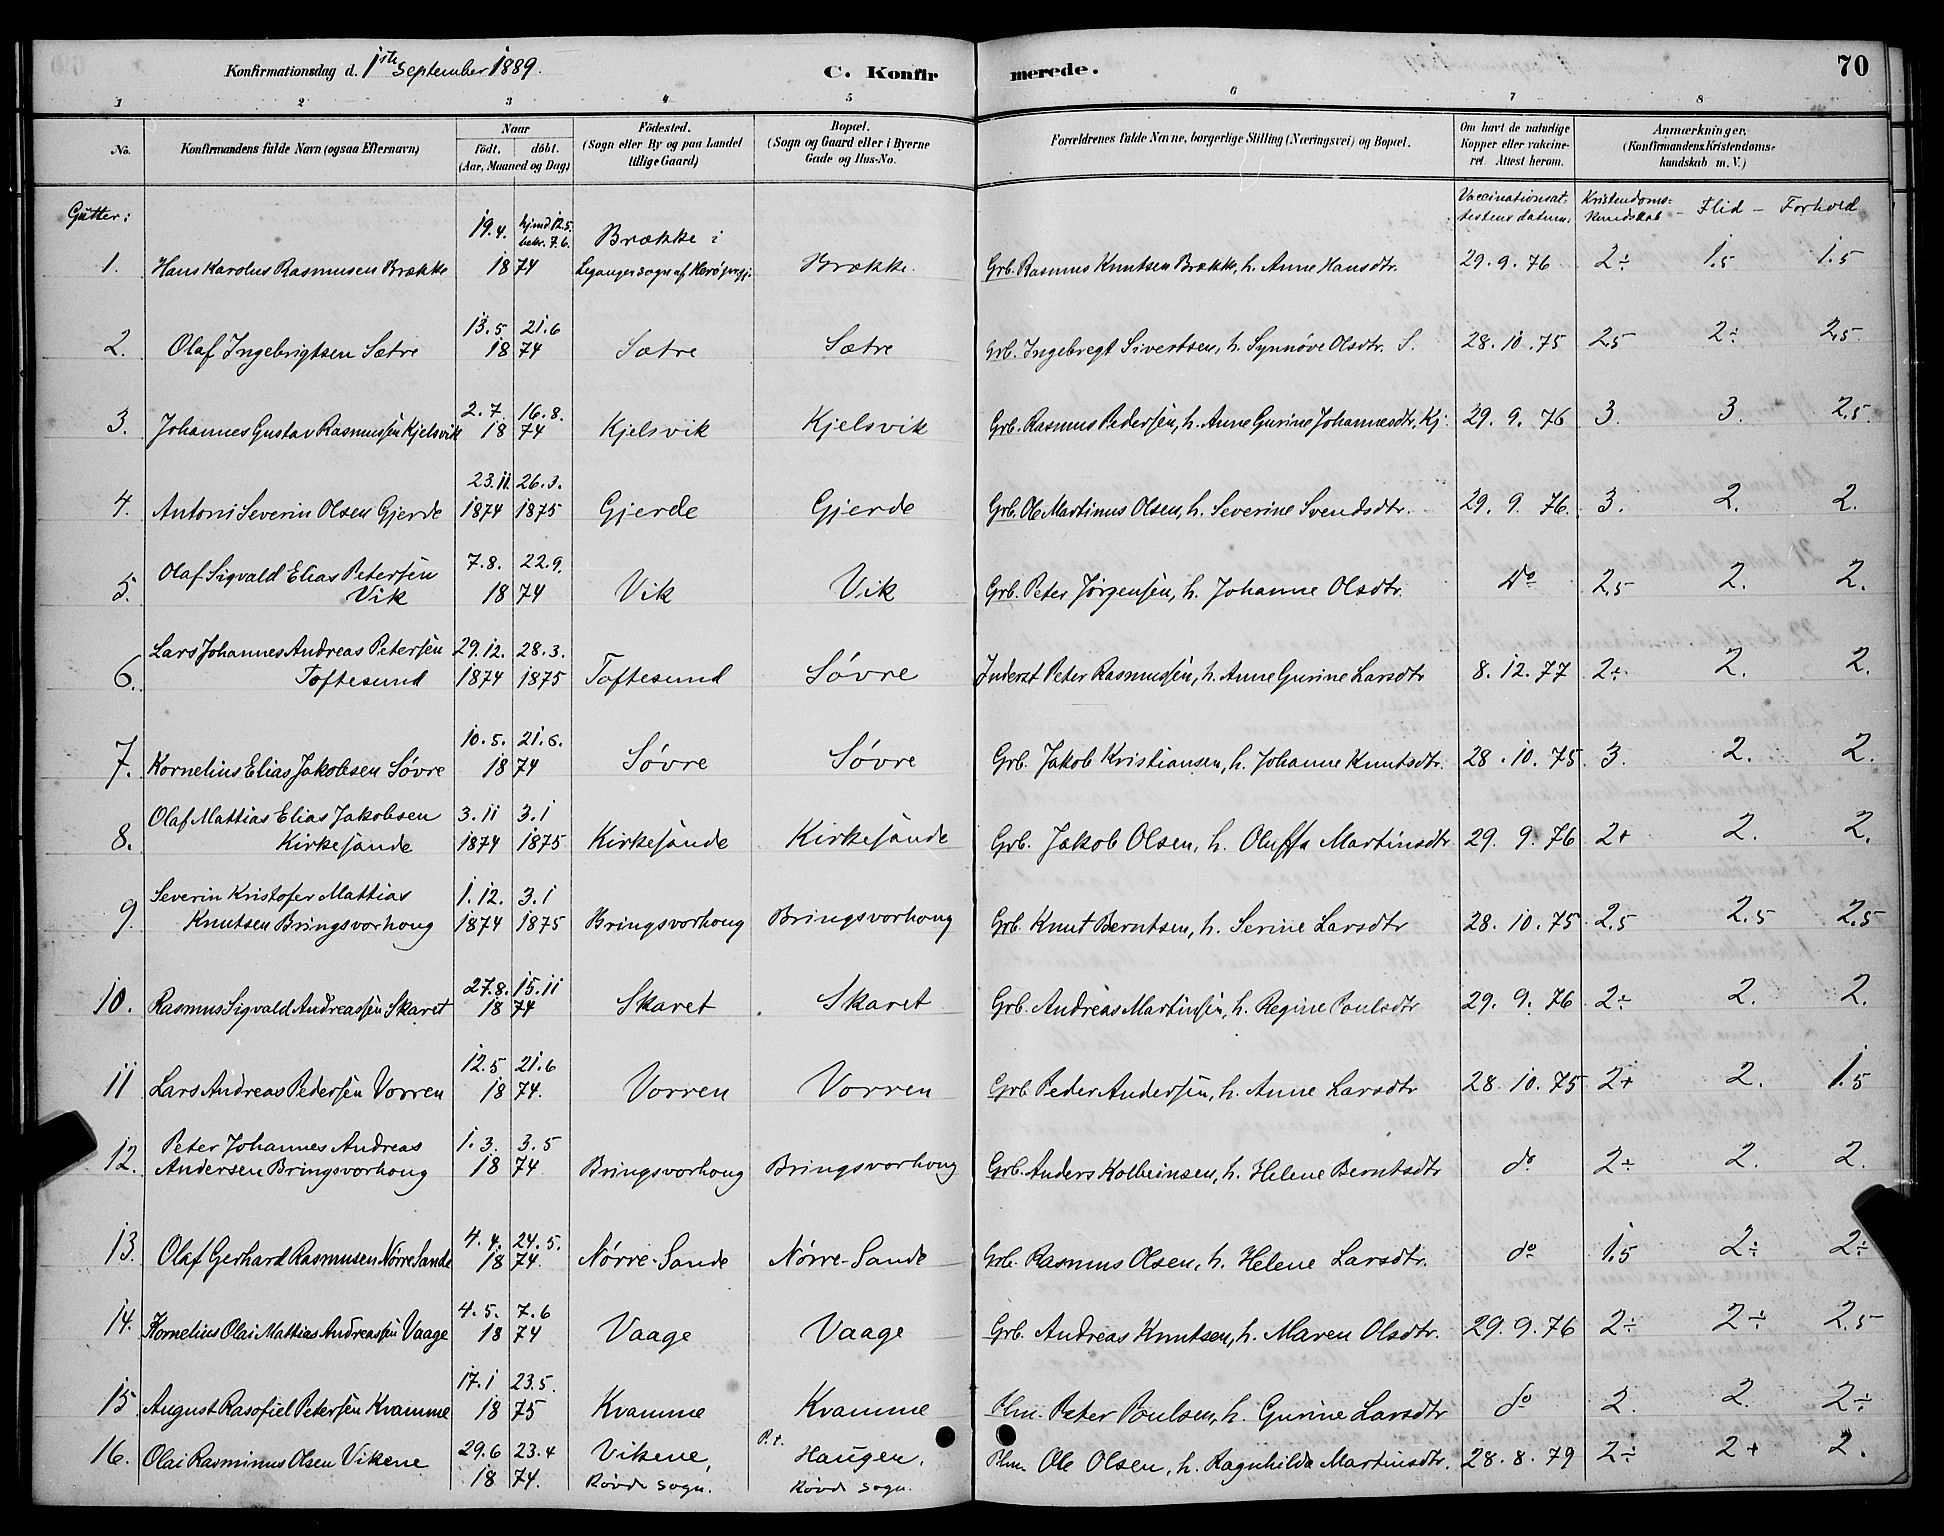 Konfirmationsdag d. 1ste September 1889. C. Konfirmerede. 70
1 2 3 4 5 6 7 8
No. Konfirmandens fulde Navn (ogsaa Efternavn) Naar födt. döbt. (Aar, Maaned og Dag) Födested. (Sogn eller By og paa Landet tillige Gaard) Bopæl. (Sogn og Gaard eller i Byerne Gade og Hus-No. Forældrenes fulde Navne, borgerlige Stilling (Næringsvei) og Bopæl. Om havt de naturlige Kopper eller vakcineret. Attest herom. Anmærkninger. (Konfirmandens Kristendomskundskab m. V.)
Gutter: Vaccinationsattestens datum. Kristendomskundskab – Flid – Forhold
19.4. hjmd 12.5. bekr. 7.6. Brække i
1. Hans Karolus Rasmusen Brække 18 74 Brække. Grb. Rasmus Knutsen Brække, h. Anne Hansdtr. 29.9.76 2÷ 1.5 1.5
13.5 21.6
2. Olaf Ingebrigtsen Sætre 18 74 Sætre Sætre Grb. Ingebregt Sivertsen, h. Synnøve Olsdtr. S. 28.10.75 2.5 2÷ 2.5
2.7. 16.8.
3. Johannes Gustav Rasmussen Kjelsvik 18 74 Kjelsvik Kjelsvik Grb. Rasmus Pedersen, h. Anne Gurine Johannesdtr. Kj. 29.9.76 3. 3. 2.5
23.11. 26.3.
4. Antoni Severin Olsen Gjerde 1874 1875 Gjerde Gjerde Grb. Ole Martinus Olsen, h. Severine Svendsdtr. 29.9.76. 3. 2. 2.
Olaf Sigvald Elias Petersen 7.8. 22.9.
5. Vik 18 74 Vik Vik Grb. Peter Jørgensen, h. Johanne Olsdtr. Do 2.5 2. 2.
Lars Johannes Andreas Petersen 29.12. 28.3.
6. Toftesund 1874 1875 Toftesund Søvre Inderst Peter Rasmussen, h. Anne Gurine Larsdtr 8.12.77 2÷ 2. 2.
10.5. 21.6.
7. Kornelius Elias Jakobsen Søvre 18 74 Søvre Søvre Grb. Jakob Kristiansen, h. Johanne Knutsdtr. 28.10.75 3. 2. 2.
Olaf Mattias Elias Jakobsen 3.11 3.1
8. Kirkesande 1874 1875 Kirkesande Kirkesande Grb. Jakob Olsen, h. Oluffa Martinsdtr 29.9.76 2+ 2. 2.
Severin Kristofer Mattias 1.12. 3.1
9. Knutsen Bringsvorhoug 1874 1875 Bringsvorhoug Bringsvorhoug Grb. Knut Berntsen, h. Serine Larsdtr 28.10.75 2.5 2.5 2.5
27.8. 15.11
10. Rasmus Sigvald Andreassen Skaret 18 74 Skaret Skaret Grb. Andreas Martinsen, h. Regine Poulsdtr 29.9.76 2÷ 2. 2.
12.5 21.6
11 Lars Andreas Pedersen Vorren 18 74. Vorren Vorren Grb Peder Andersen, h. Anne Larsdtr 28.10.75 2+ 2. 1.5
Peter Johannes Andreas 1.3. 3.5
12. Andersen Bringsvorhoug 18 74. Bringsvorhoug Bringsvorhoug Grb. Anders Kolbeinsen, h. Helene Berntsdtr do 2÷ 2. 2.
4.4. 24.5.
13. Olaf Gerhard Rasmusen Nørre Sande 18 74. Nørre-Sande Nørre-Sande Grb. Rasmus Olsen, h. Helene Larsdtr. do 1.5 2÷ 2÷
4.5. 7.6
14. Kornelius Olai Mattias Andreassen Vaage 18 74 Vaage Vaage Grb. Andreas Knutsen, h. Maren Olsdtr. 29.9.76 2÷ 2÷ 2.5
17.1 23.5.
15 August Rasofiel Petersen Kvamme 18 75 Kvamme Kvamme Plm. Peter Poulsen, h. Gurine Larsdtr do 2. 2. 2÷
16. Olai Rasminus Olsen Vikene 29.6 23.4 Vikene, P.t. Haugen, Plm. Ole Olsen, h. Ragnhilda Martinsdtr. 28.8.79 2÷ 2+ 2.
18 74. Røvde sogn. Røvde sogn.